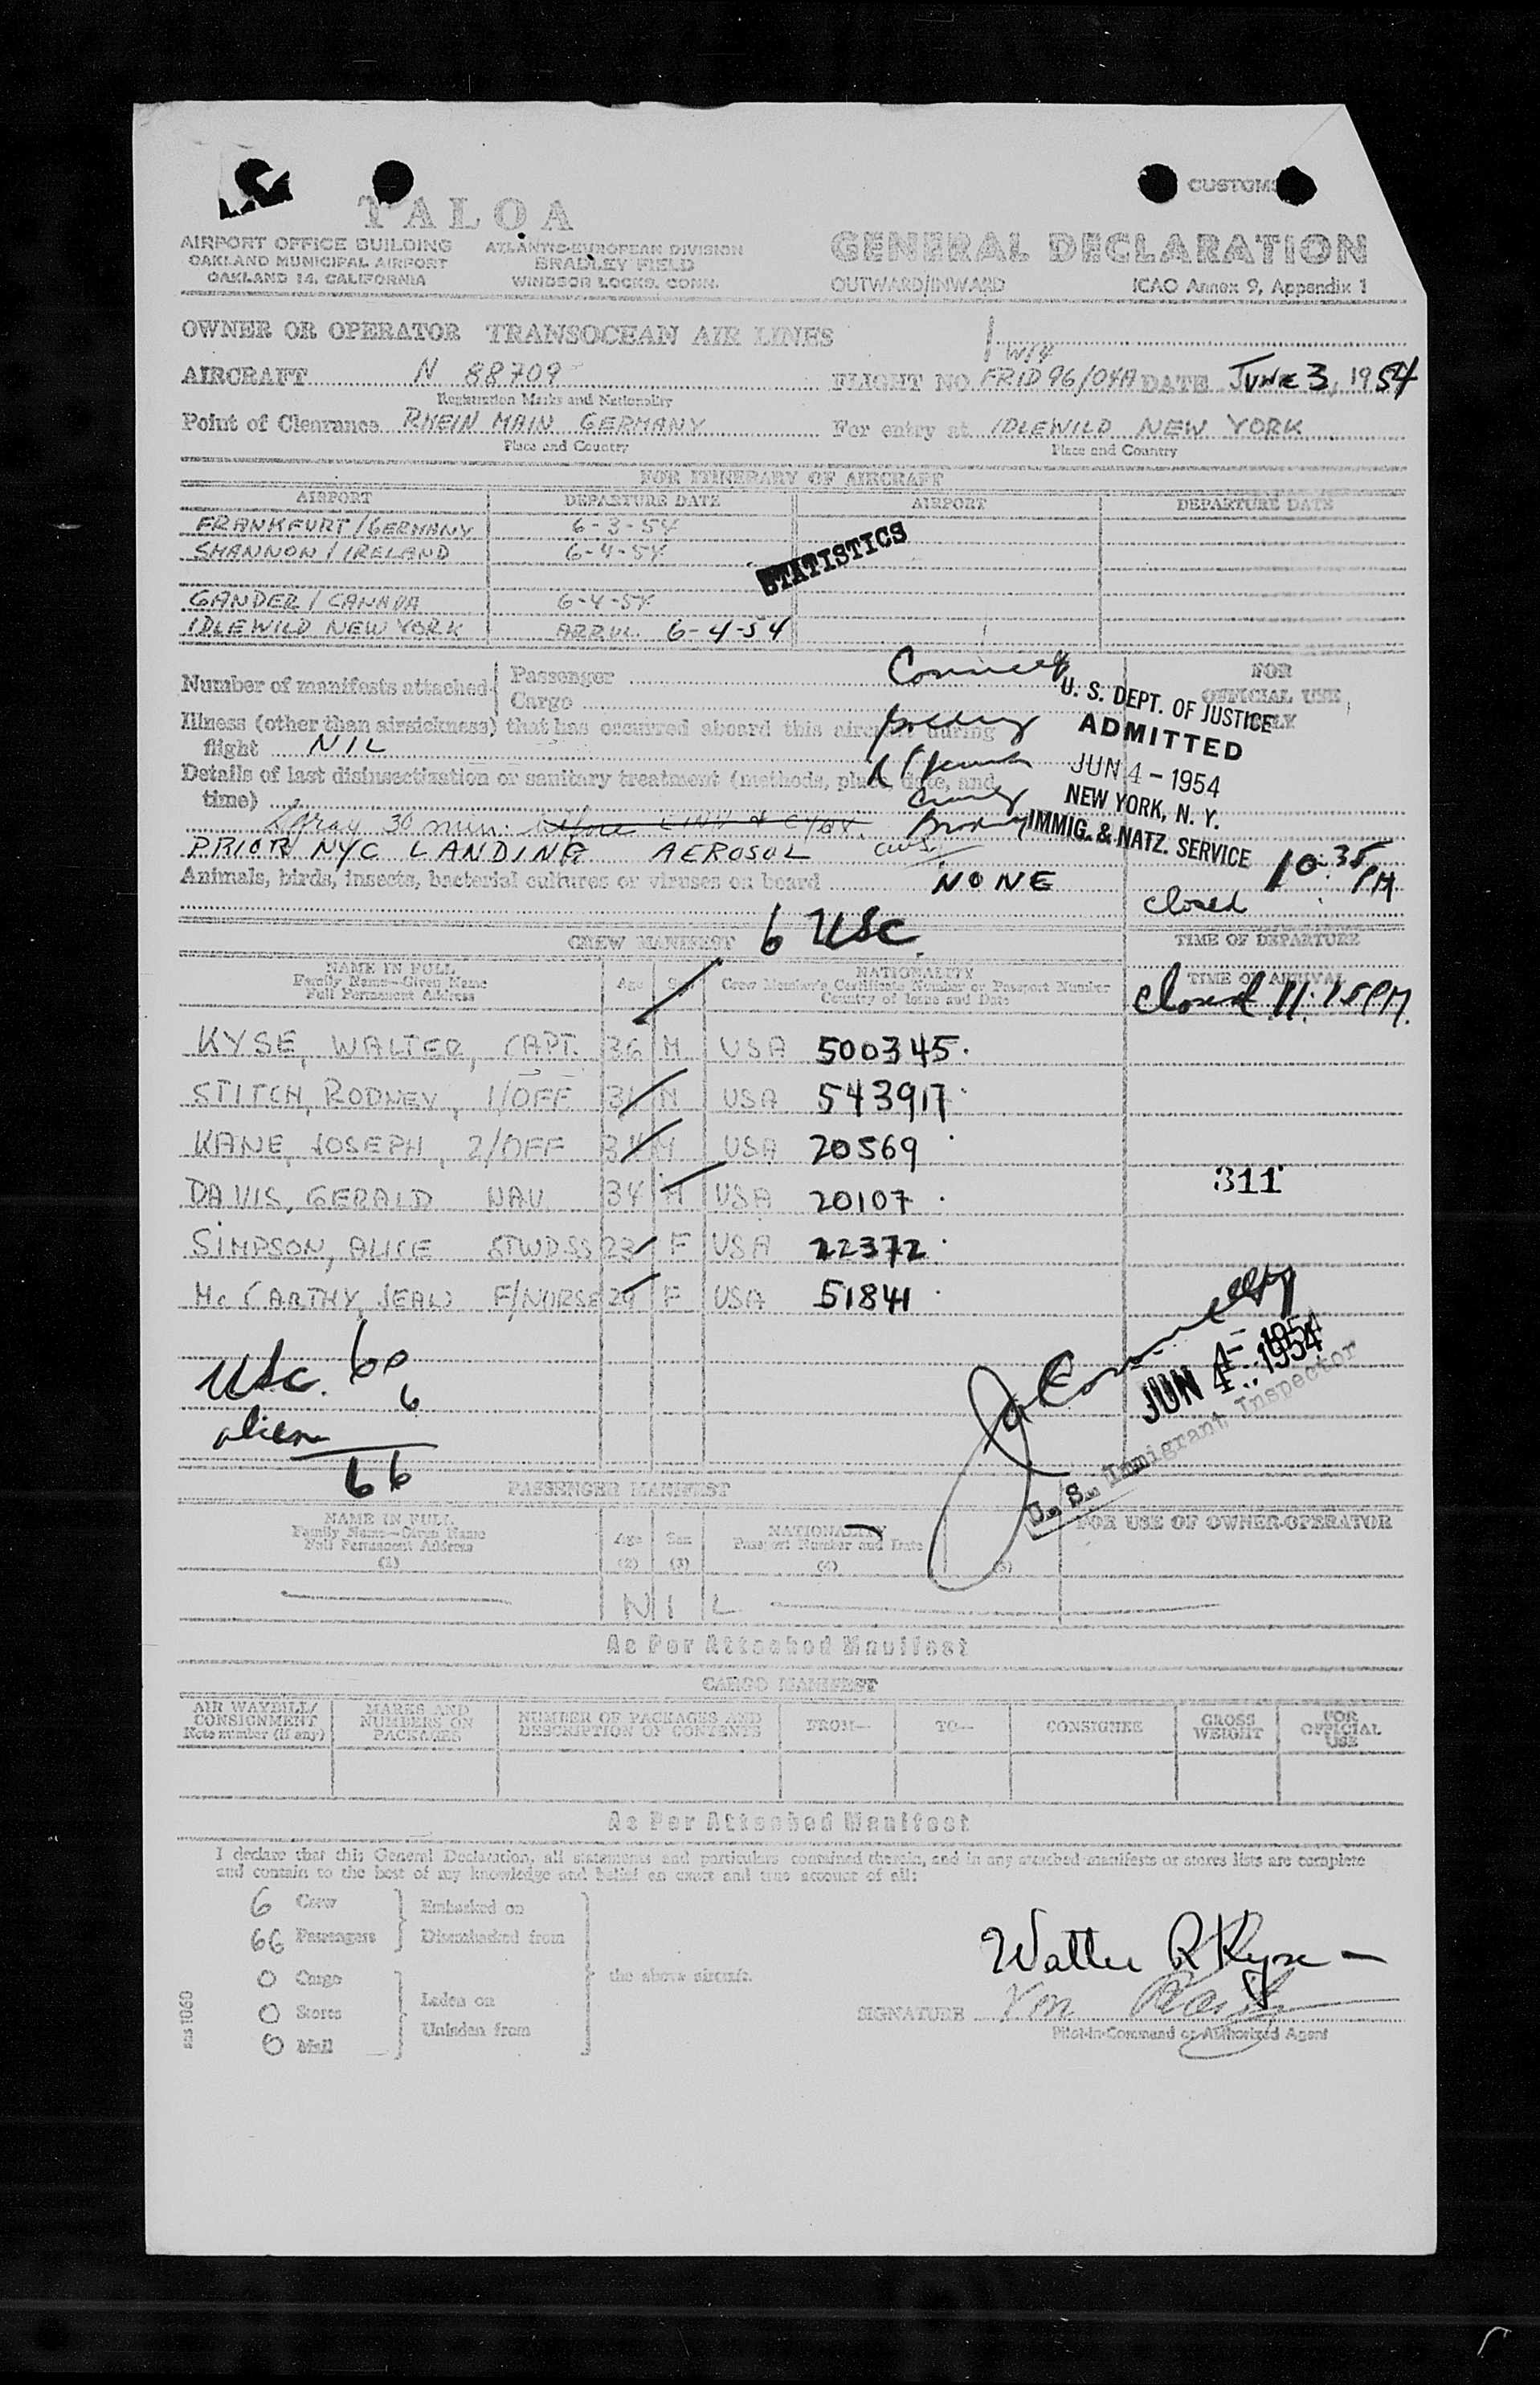 CUSTOMS
TALOA
AIRPORT OFFICE BUILDING
OAKLAND MUNICIPAL AIRPORT
OAKLAND 14, CALIFORNIA
ATLANTIC-EUROPEAN DIVISION
BRADLEY FIELD
WINDSOR LOCKS, CONN.
GENERAL DECLARATION
OUTWARD/INWARD ICAO Annex 9, Appendix 1
OWNER OR OPERATOR TRANSOCEAN AIR LINES
AIRCRAFT N 88709 FLIGHT NO FRID 96/04A DATE JUNE 3, 1954
Registration Marks and Nationality
Point of Clearance RHEIN MAIN GERMANY For entry at IDLEWILD NEW YORK
Place and Country Place and Country
FOR ITINERARY OF AIRCRAFT
AIRPORT DEPARTURE DATE AIRPORT DEPARTURE DATE
FRANKFURT/GERMANY 6-3-54
SHANNON/IRELAND 6-4-54
STATISTICS
GANDER/CANADA 6-4-54
IDLEWILD NEW YORK ARRVL. 6-4-54
Number of manifests attached Passenger
Cargo
FOR OFFICIAL USE ONLY
Illness (other than airsickness) that has occurred aboard this aircraft during
flight NIL
Details of last disinsectization or sanitary treatment (methods, place, date, and
time)
Spray 30 min. before
PRIOR NYC LANDING AEROSOL
Animals, birds, insects, bacterial cultures or viruses on board NONE
U. S. DEPT. OF JUSTICE
ADMITTED
JUN 4 - 1954
NEW YORK, N. Y.
IMMIG. & NATZ. SERVICE
10:35 PM
closed
6 USC
CREW MANIFEST
TIME OF DEPARTURE
TIME OF ARRIVAL
closed 11:15 PM.
NAME IN FULL
Family Name—Given Name
Full Permanent Address
Age Sex
NATIONALITY
Crew Member's Certificate Number or Passport Number
Country of Issue and Date
KYSE, WALTER, CAPT. 36 M USA 500345
STITCH, RODNEY, 1/OFF 31 M USA 543917
KANE, JOSEPH, 2/OFF 34 M USA 20569
DAVIS, GERALD NAV 34 M USA 20107
311
SIMPSON, ALICE STWDSS 23 F USA 22372
McCARTHY, JEAN F/NURSE 29 F USA 51841
USC. 60
alien 6
66
JUN 4 - 1954
U. S. Immigrant Inspector
PASSENGER MANIFEST
NAME IN FULL
Family Name—Given Name
Full Permanent Address
(1)
Age
(2)
Sex
(3)
NATIONALITY
Passport Number and Date
(4)
(5)
FOR USE OF OWNER-OPERATOR
NIL
As Per Attached Manifest
CARGO MANIFEST
AIR WAYBILL/
CONSIGNMENT
Note number (if any)
MARKS AND
NUMBERS ON
PACKAGES
NUMBER OF PACKAGES AND
DESCRIPTION OF CONTENTS
FROM—
TO—
CONSIGNEE
GROSS
WEIGHT
FOR
OFFICIAL
USE
As Per Attached Manifest
I declare that this General Declaration, all statements and particulars contained therein, and in any attached manifests or stores lists are complete
and contain to the best of my knowledge and belief an exact and true account of all:
6 Crew
66 Passengers
Embarked on
Disembarked from
0 Cargo
0 Stores
0 Mail
Laden on
Unladen from
the above aircraft.
Walter R Kyse
SIGNATURE
Pilot-in-Command or Authorized Agent